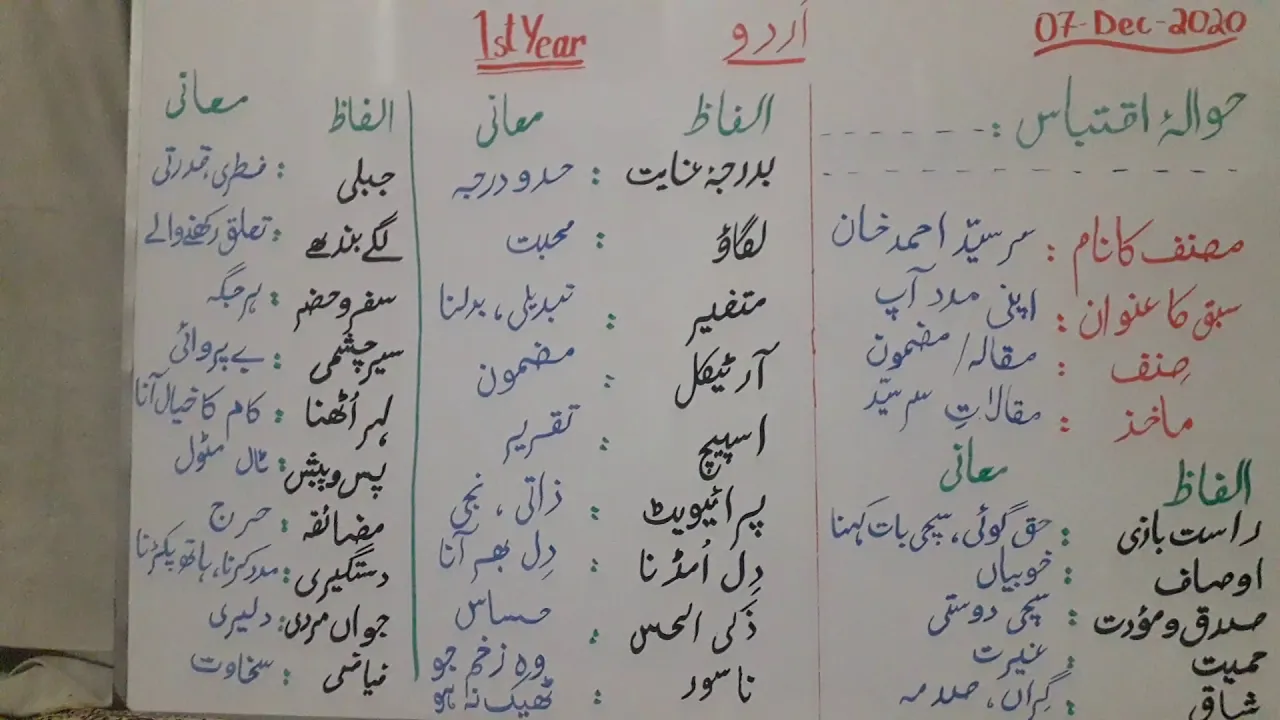 07-Dec-2020
اُردو
1st Year
حوالۂ اقتباس :
مصنف کا نام : سر سیّد احمد خان
سبق کا عنوان : اپنی مدد آپ
صِنف : مقالہ / مضمون
ماخذ : مقالاتِ سر سیّد
الفاظ معانی
راست بازی : حق گوئی، سچی بات کہنا
اوصاف : خوبیاں
صدق و مؤدت : سچی دوستی
حمیت : غیرت
شاق : گراں، صدمہ
الفاظ معانی
بدرجۂ غایت : حد و درجہ
لگاؤ : محبت
متغیر : تبدیلی، بدلنا
آرٹیکل : مضمون
اسپیچ : تقریر
پرائیویٹ : ذاتی، نجی
دِل اُمڈنا : دِل بھر آنا
ذَکی الحس : حساس
ناسور : وہ زخم جو
ٹھیک نہ ہو
الفاظ معانی
جبلی : فطری، قدرتی
لگے بندھے : تعلق رکھنے والے
سفر و حضر : ہر جگہ
سیر چشمی : بے پروائی
لہر اُٹھنا : کام کا خیال آنا
پس و پیش : ٹال مٹول
مضائقہ : حرج
دستگیری : مدد کرنا، ہاتھ پکڑنا
جواں مردی : دلیری
فیاضی : سخاوت